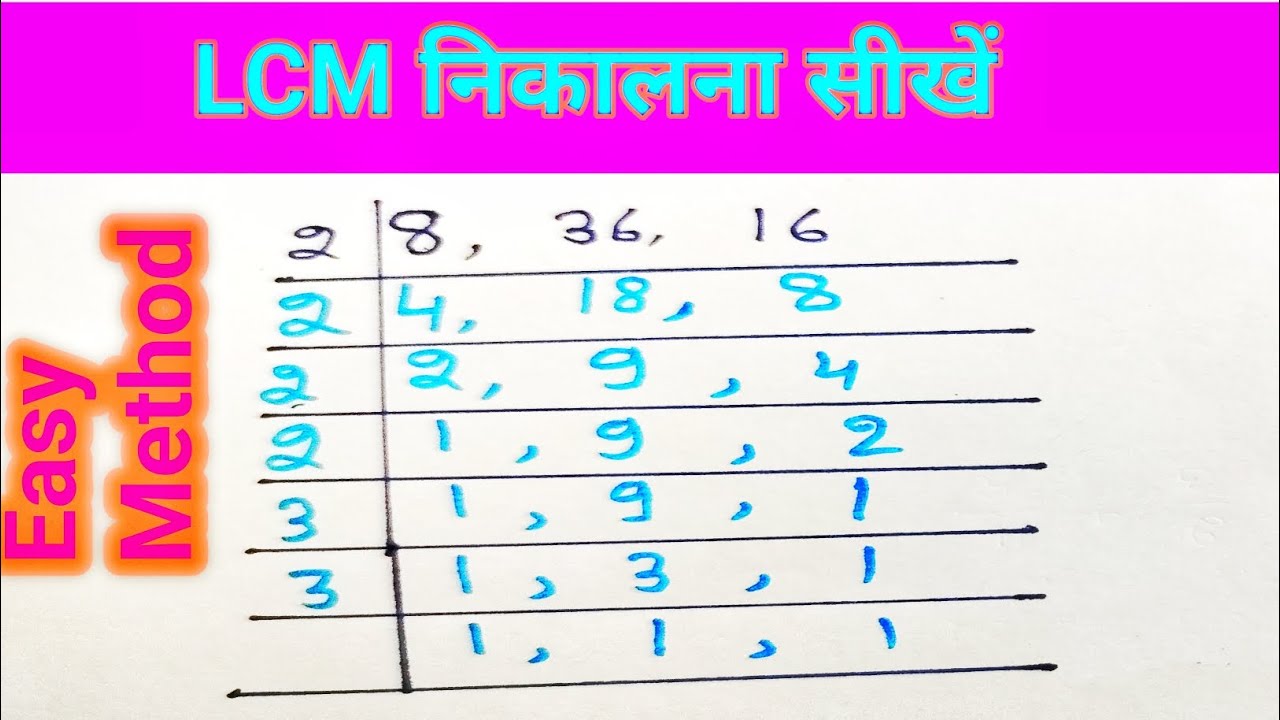 LCM निकालना सीखें
Easy
Method
2 8, 36, 16
2 4, 18, 8
2 2, 9, 4
2 1, 9, 2
3 1, 9, 1
3 1, 3, 1
1, 1, 1